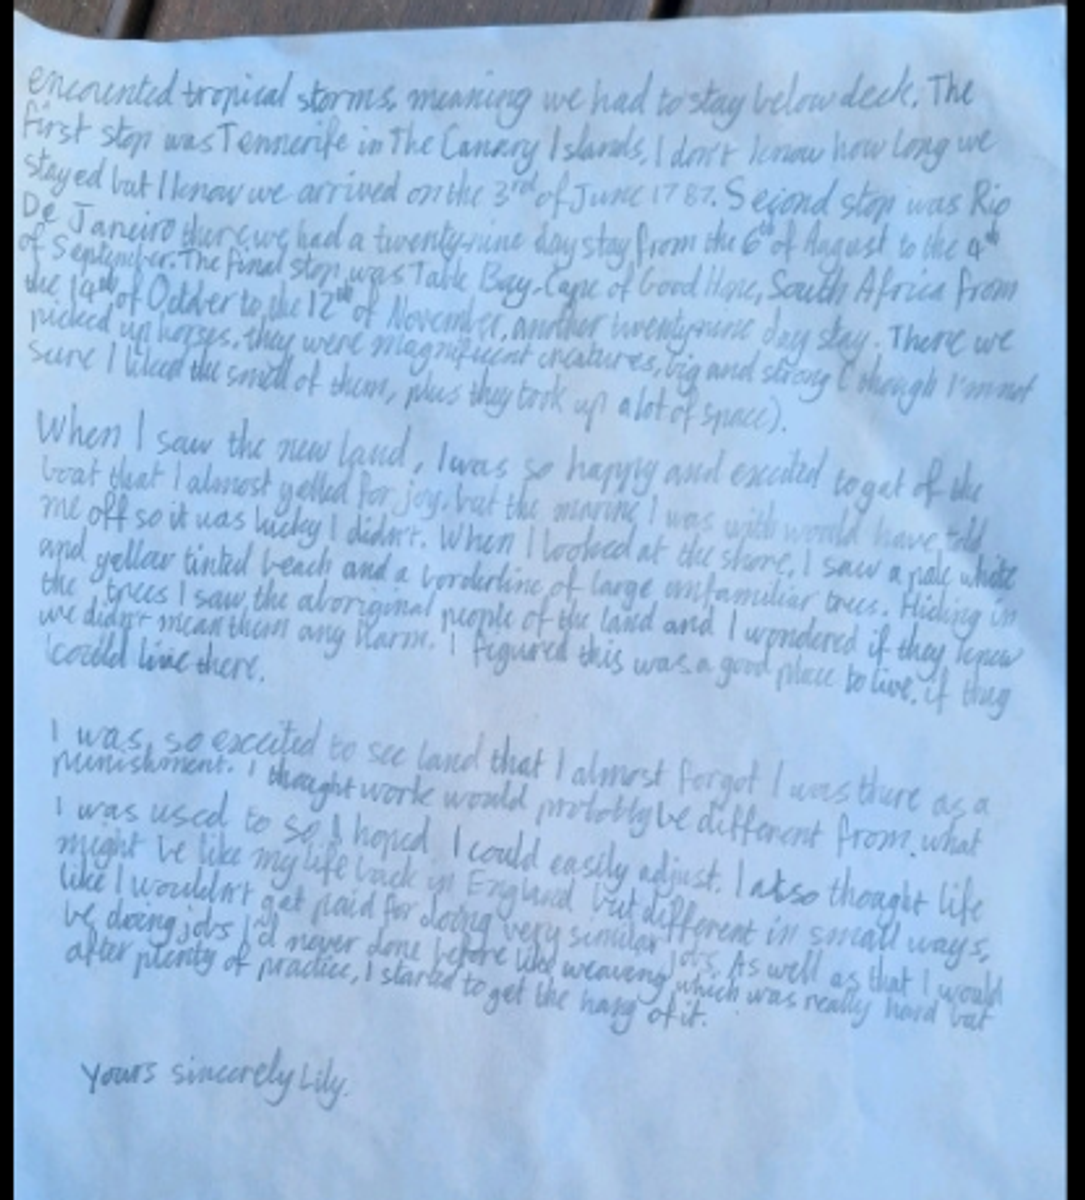 encounted tropical storms, meaning we had to stay below deck. The
first stop was Tennerife in The Canary Islands, I don't know how long we
stayed but I know we arrived on the 3rd of June 1787. Second stop was Rio
De Janeiro there, we had a twenty-nine day stay from the 6th of August to the 4th
of September. The final stop was Table Bay, Cape of Good Hope, South Africa from
the 14th of October to the 12th of November, another twenty-nine day stay. There we
picked up horses, they were magnificent creatures, big and strong (though I'm not
sure I liked the smell of them, plus they took up a lot of space).
When I saw the new land, I was so happy and excited to get of the
boat that I almost yelled for joy, but the marine I was with would have told
me off so it was lucky I didn't. When I looked at the shore, I saw a pale white
and yellow tinted beach and a borderline of large unfamiliar trees. Hiding in
the trees I saw the aboriginal people of the land and I wondered if they knew
we didn't mean them any harm. I figured this was a good place to live, if they
could live there.
I was so excited to see land that I almost forgot I was there as a
punishment. I thought work would probobly be different from what
I was used to so I hoped I could easily adjust. I also thought life
might be like my life back in England but different in small ways,
like I wouldn't get paid for doing very similar jobs. As well as that I would
be doing jobs I'd never done before like weaving which was really hard but
after plenty of practice, I started to get the hang of it.
Yours sincerely Lily.